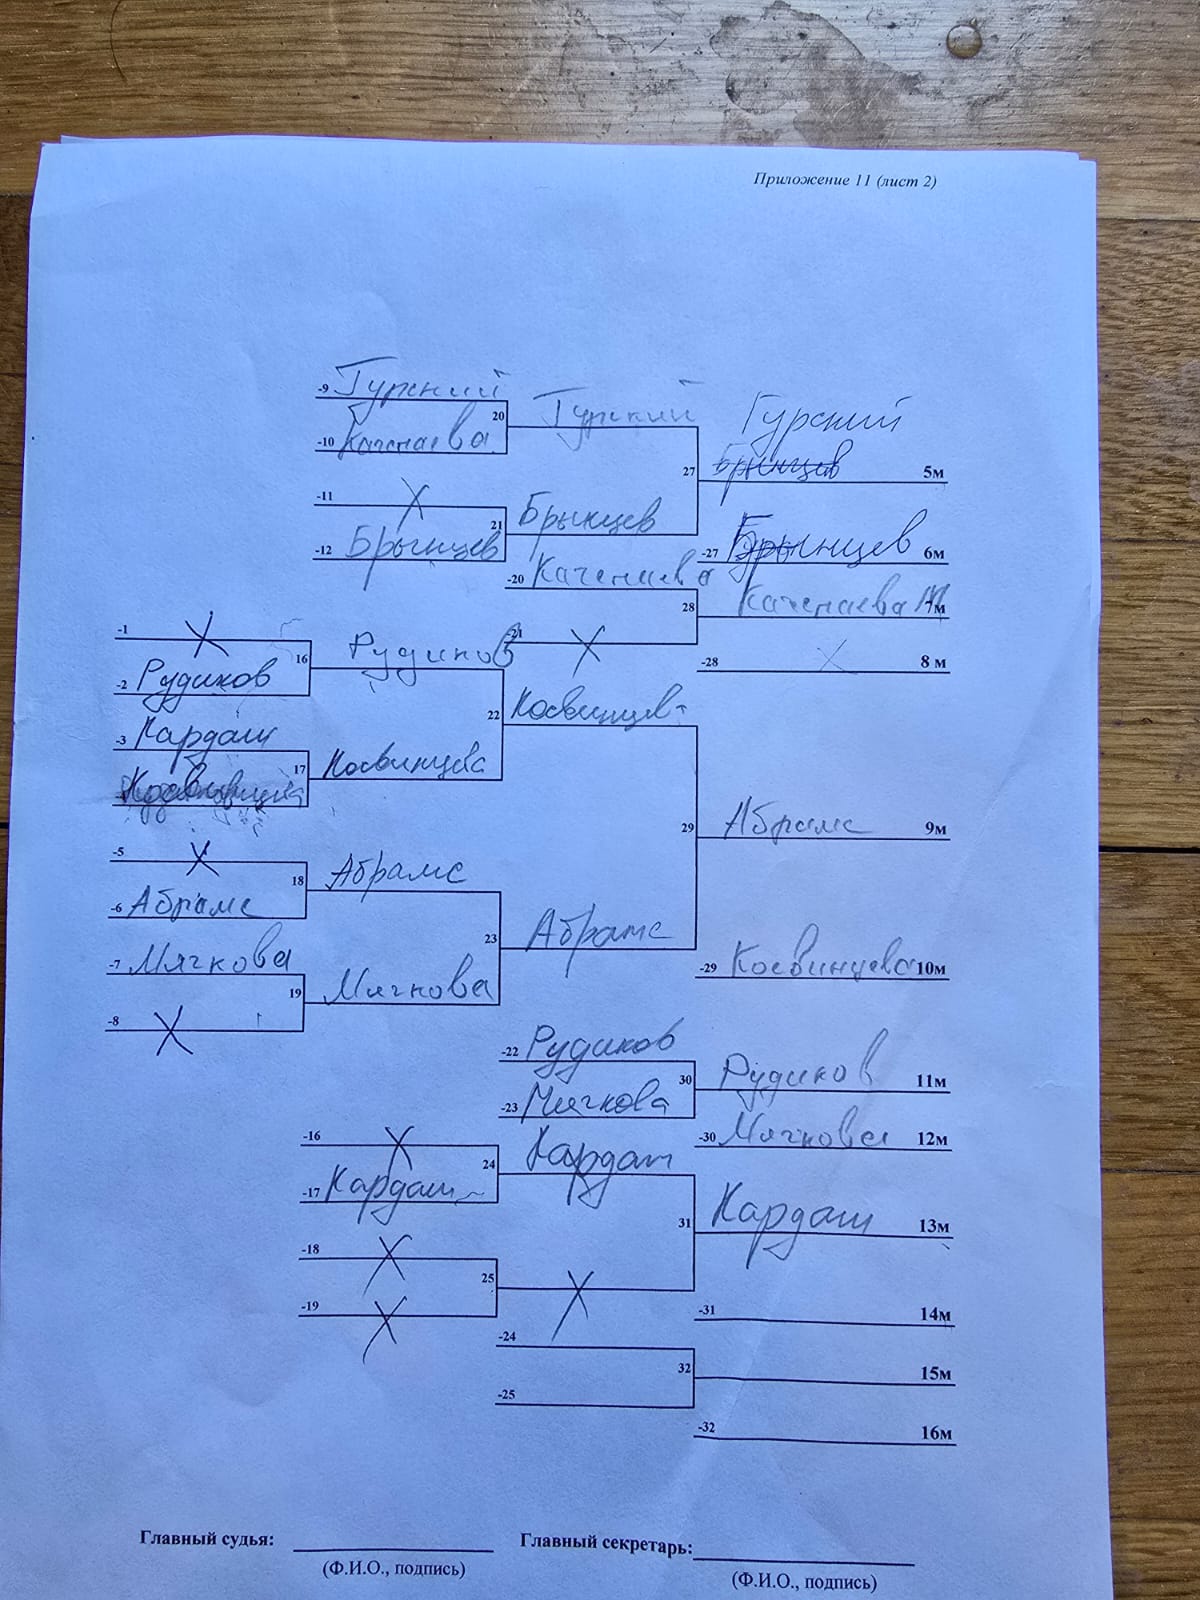 Приложение 11 (лист 2)
-9 Гурский
20 Гурский
Гурский
-10 Каченаева
27 Брынцев 5м
-11 X
21 Брынцев
-12 Брынцев
-27 Брынцев 6м
-20 Каченаева
28 Каченаева 7м
-1 X
-21 X
16 Рудиков
-28 X 8 м
-2 Рудиков
22 Косвинцев
-3 Кардаш
17 Косвинцева
29 Абрамс 9м
-5 X
18 Абрамс
-6 Абрамс
23 Абрамс
-7 Мячкова
-29 Косвинцева 10м
19 Мячкова
-8 X
-22 Рудиков
30 Рудиков 11м
-23 Мячкова
-16 X
-30 Мячкова 12м
24 Кардаш
-17 Кардаш
31 Кардаш 13м
-18 X
25 X
-19 X
-31 14м
-24
32 15м
-25
-32 16м
Главный судья: Главный секретарь:
(Ф.И.О., подпись) (Ф.И.О., подпись)